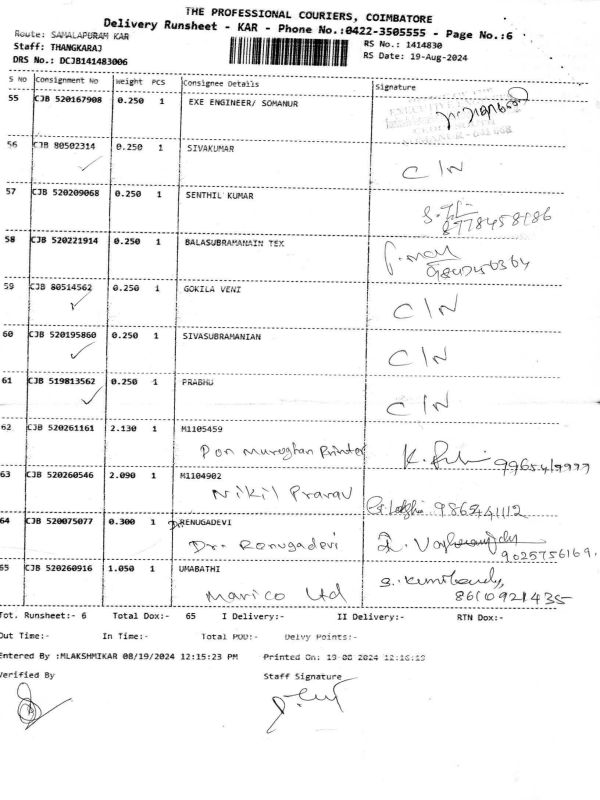 THE PROFESSIONAL COURIERS, COIMBATORE
Delivery Runsheet - KAR - Phone No.:0422-3505555 - Page No.:6
Route: SAMALAPURAM KAR
Staff: THANGKARAJ
DRS No.: DCJB141483006
RS No.: 1414830
RS Date: 19-Aug-2024
S NO Consignment No Weight PCS Consignee Details Signature
55 CJB 520167908 0.250 1 EXE ENGINEER/ SOMANUR
56 CJB 80502314 0.250 1 SIVAKUMAR C/N
57 CJB 520209068 0.250 1 SENTHIL KUMAR
58 CJB 520221914 0.250 1 BALASUBRAMANAIN TEX
59 CJB 80514562 0.250 1 GOKILA VENI C/N
60 CJB 520195860 0.250 1 SIVASUBRAMANIAN C/N
61 CJB 519813562 0.250 1 PRABHU C/N
62 CJB 520261161 2.130 1 M1105459
Pon Murughan Printer
63 CJB 520260546 2.090 1 M1104902
Nikil Pranav 9865441112
64 CJB 520075077 0.300 1 Dr RENUGADEVI
Dr. Renugadevi 9025756169.
65 CJB 520260916 1.050 1 UMABATHI
Marico Ltd 8610921435
Tot. Runsheet:- 6 Total Dox:- 65 I Delivery:- II Delivery:- RTN Dox:-
Out Time:- In Time:- Total POD:- Delvy Points:-
Entered By :MLAKSHMIKAR 08/19/2024 12:15:23 PM Printed On: 19-08 2024 12:16:19
Verified By Staff Signature